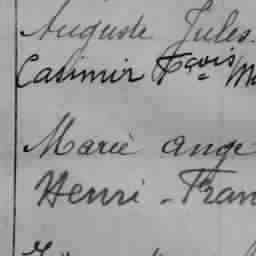 Auguste Jules
Casimir Fçois
Marie ange
Henri - Fran